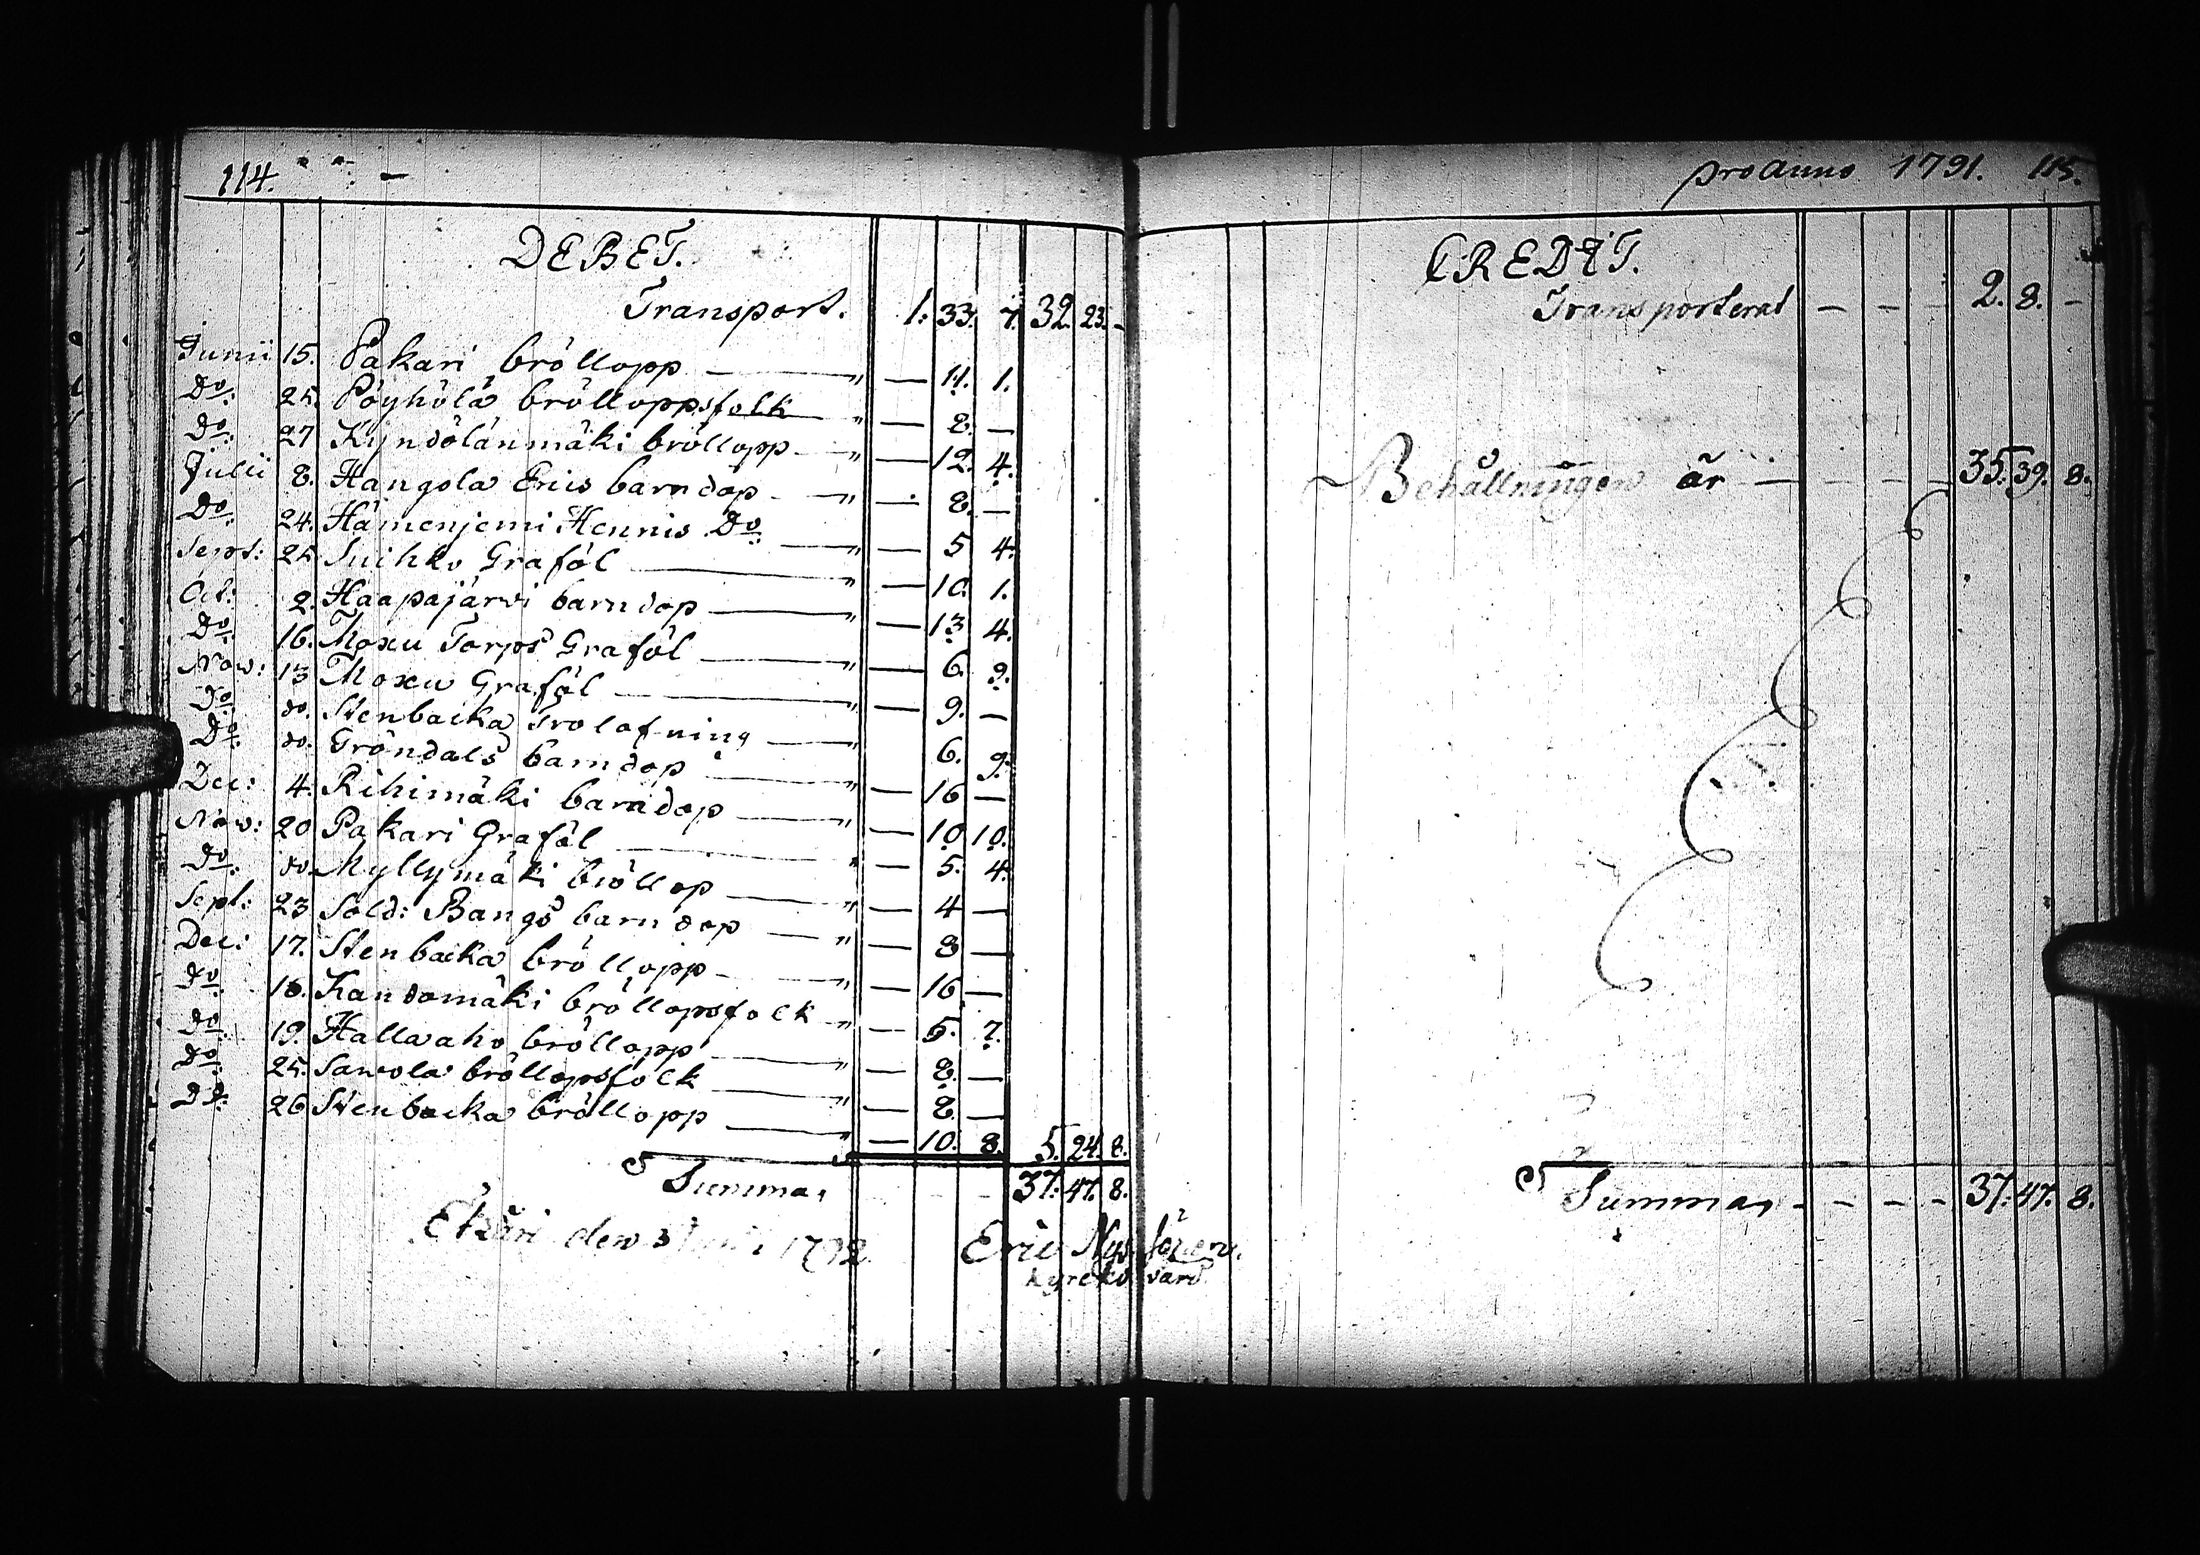 114.
DEBET.
Transport. 1. 33. 7. 32. 23. -
Junii 15. Pakari bröllopp — " — 11. 1.
Do: 25. Pöyhölä brölloppsfolk — " — 8. —
Do: 27 Kyndölänmäki bröllopp — " — 12. 4.
Julii 8. Hangola Erics barndop — " — 8. —
Do: 24. Hämenjemi Hennis Do: — " — 5 4.
Sept: 25 Suihko Graföl — " — 10. 1.
Oct: 2. Haapajärvi barndop — " — 13 4.
Do: 16. Moxu Torps Graföl — " — 6. 9.
Now: 13 Moxu Graföl — " — 9. —
Do: do. Stenbacka Trolofning — " 6. 9.
Do: do. Gröndals barndop — " — 16 —
Dec: 4. Rihimäki barndop — " — 10 10.
Now: 20 Pakari Graföl — " — 5. 4.
Do: do. Myllymäki bröllop — " — 4 —
Sept: 23 Sold: Bangs barndop — " — 8 —
Dec: 17. Stenbacka bröllopp — " — 16 —
do: 18. Kandomäki bröllopsfolk " — 5. 7.
do: 19. Hallaaho bröllopp — " — 8. —
Do: 25. Sawola bröllopsfolk — " — 8. —
Do: 26 Stenbacka bröllopp — " — 10. 8. 5. 24. 8.
Summa, 37. 47. 8.
Etzäri den 1792. Eric
Kyrckovärd
pro Anno 1791. 115.
CREDIT.
Transporterat — — — 2. 8. —
Behållningen är — — — — 35. 39. 8.
Summa, - - - - 37. 47. 8.